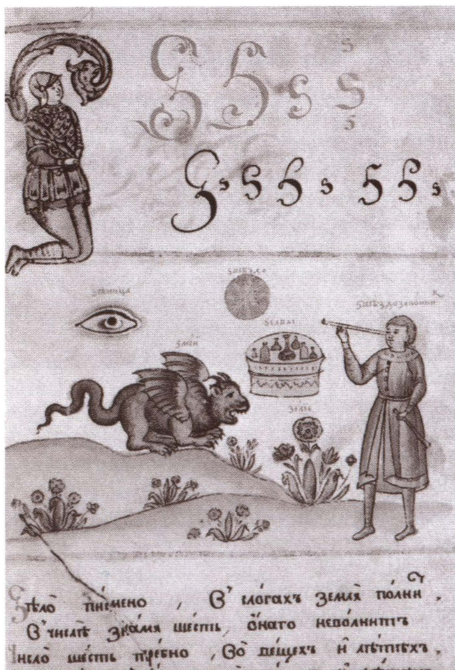 Ѕ Ѕ ѕ ѕ ѕ ѕ
Ѕ ѕ Ѕ Ѕ ѕ Ѕ Ѕ ѕ
ѕвѣзда
ѕѣница
ѕвѣздозаконник
ѕмїй
ѕелїе
Ѕѣло писмено , В' слогахъ Земля полни ,
В' числѣ знамя шесть , онаго неполнитъ
Число шесть требно , Во вещехъ и лѣтѣхъ